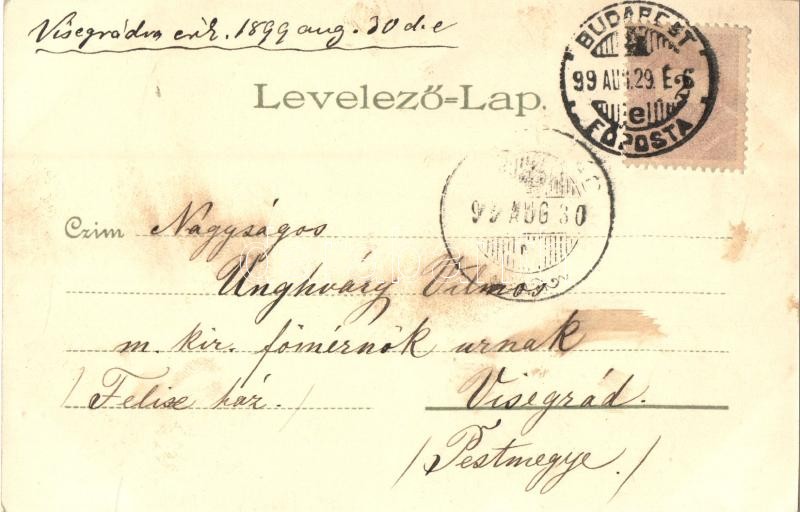 Visegrádra érk. 1899 aug. 30 d. e
BUDAPEST
99 AUG. 29. É. 6
e
FŐPOSTA
Levelező=Lap.
99 AUG 30
Czim Nagyságos
Unghváry Vilmos
m. kir. főmérnök urnak
/ Felise ház. / Visegrád.
/ Pestmegye. /